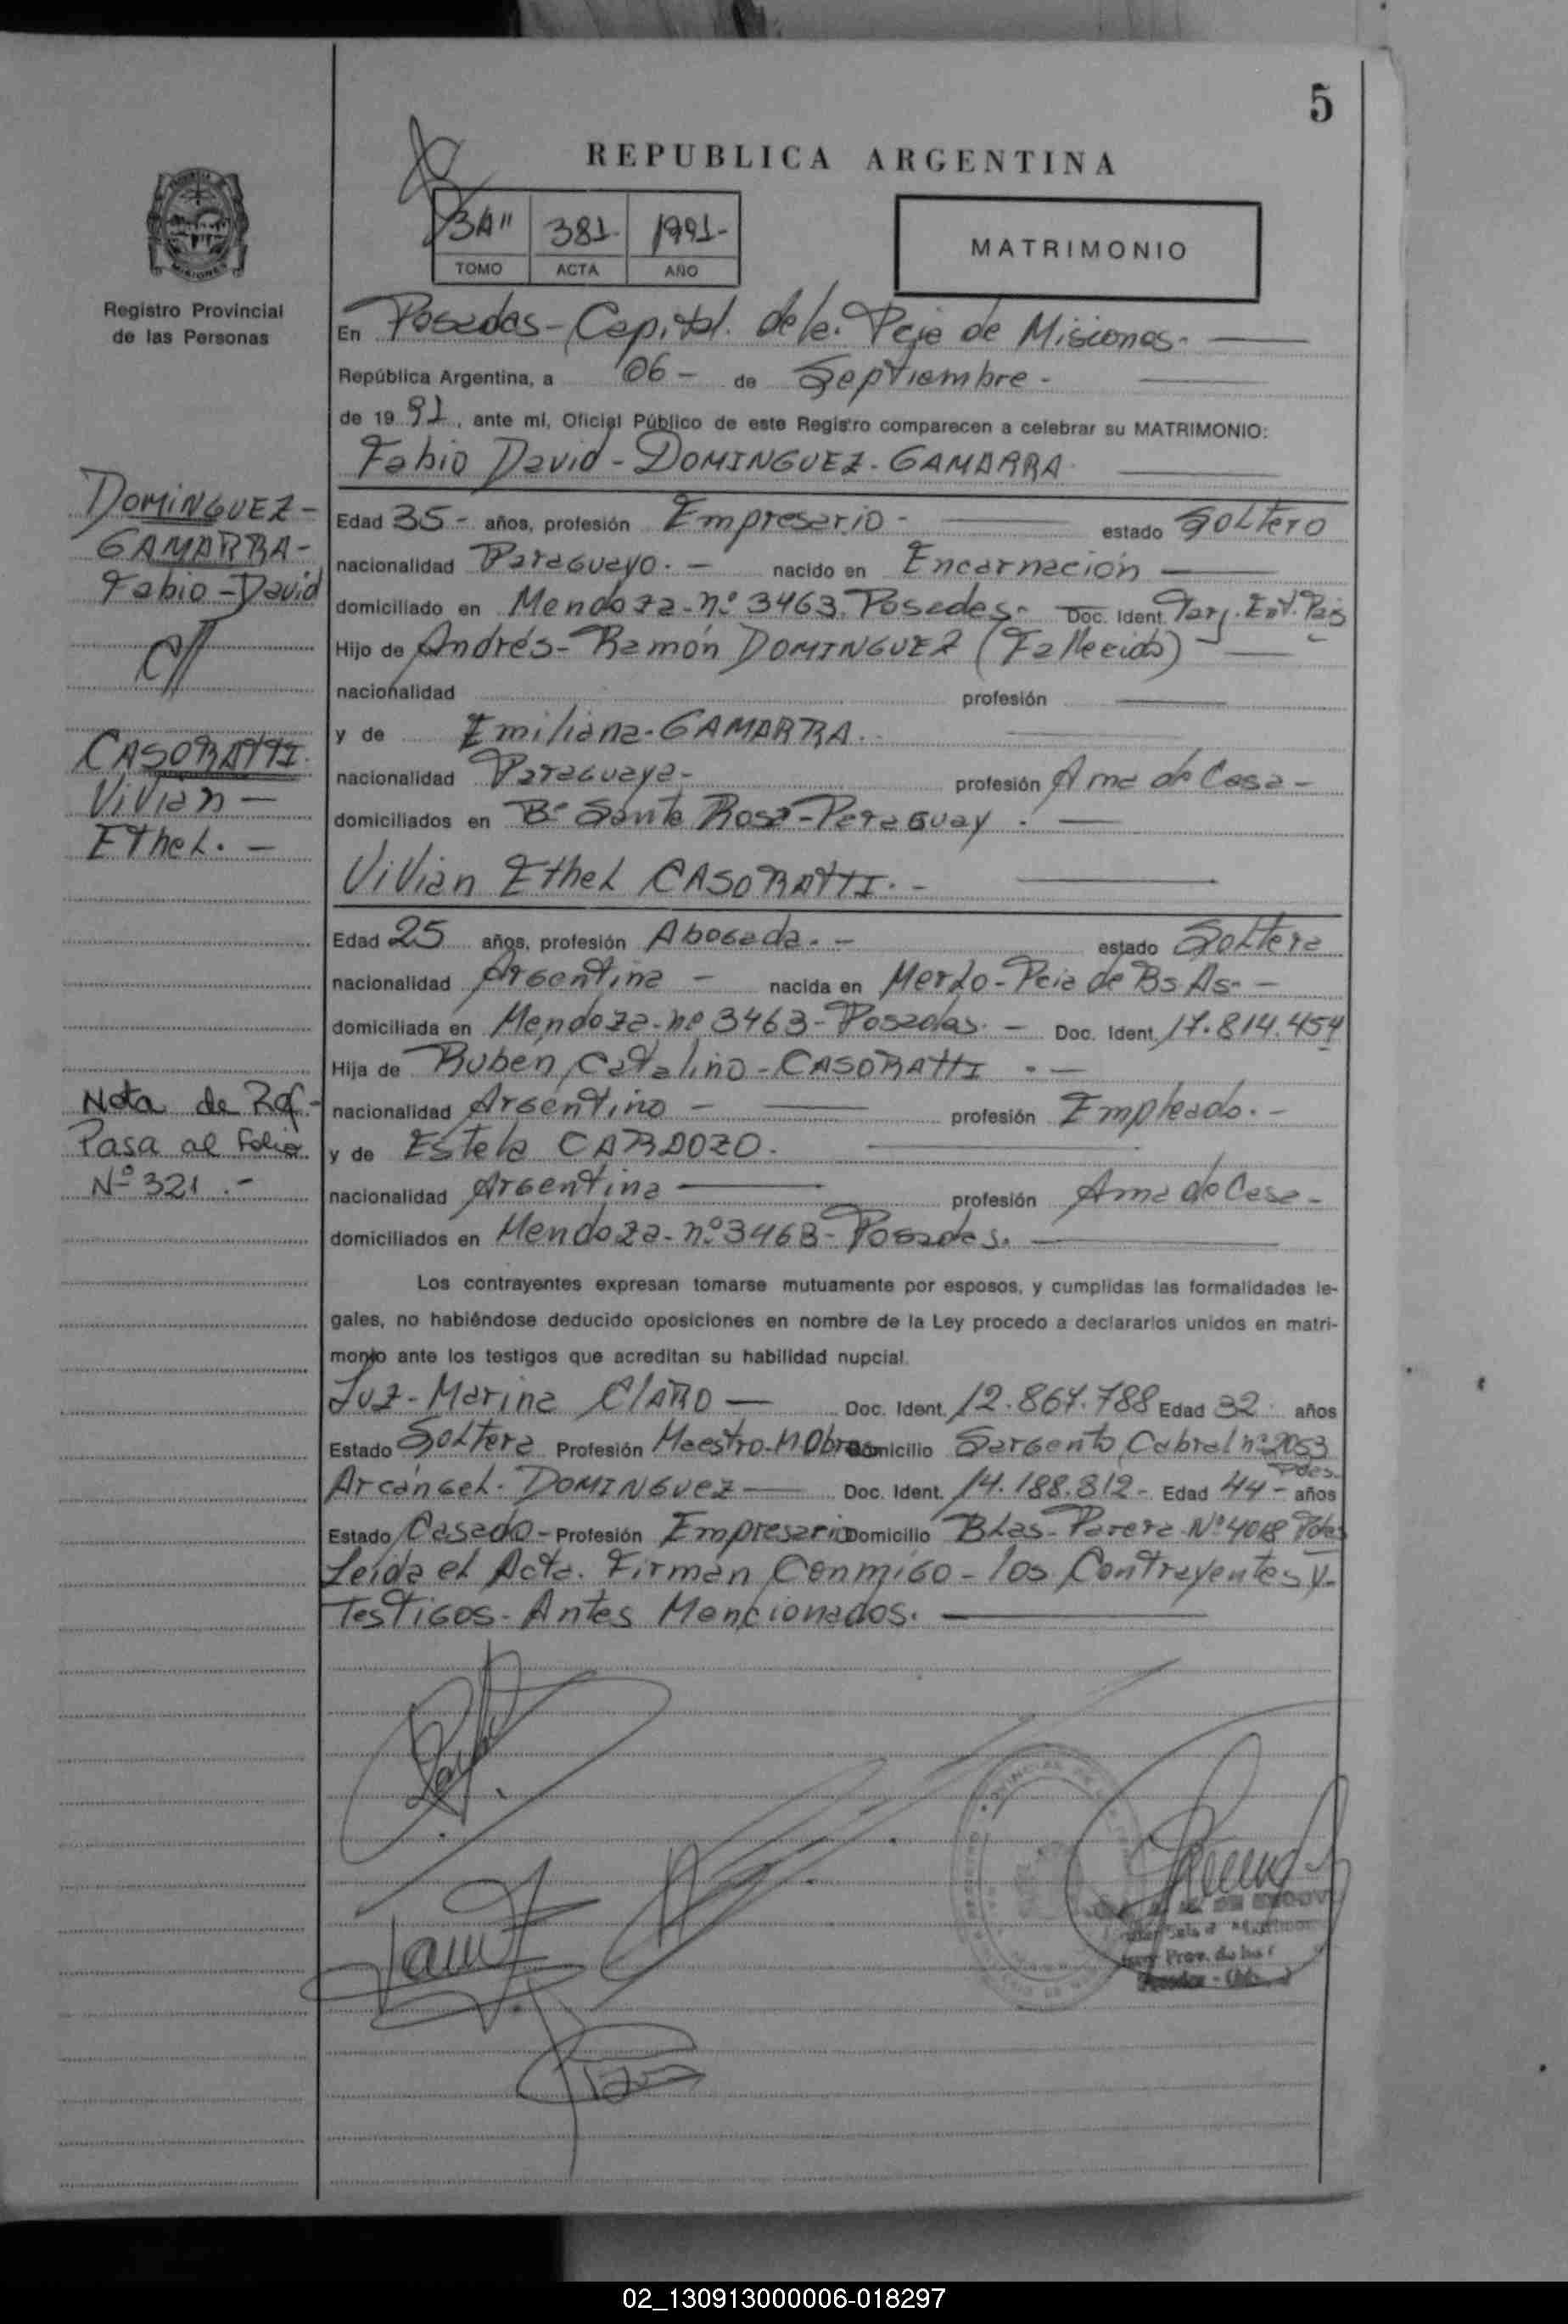 5
REPUBLICA ARGENTINA
3A" 381- 1991-
TOMO ACTA AÑO
MATRIMONIO
MISIONES
Registro Provincial
de las Personas
En Posadas - Capital. de la. Pcia de Misiones.-
República Argentina, a 06- de Septiembre-
de 19 91, ante mí, Oficial Público de este Registro comparecen a celebrar su MATRIMONIO:
Fabio David - DOMINGUEZ - GAMARRA
DOMINGUEZ-
GAMARRA-
Fabio-David
Edad 35- años, profesión Empresario- estado Soltero
nacionalidad Paraguayo.- nacido en Encarnación
domiciliado en Mendoza-nº 3463. Posadas- Doc. Ident. Tarj. Ent. Pais
Hijo de Andrés-Ramón DOMINGUEZ (Fallecido)
nacionalidad profesión
y de Emiliana-GAMARRA.
nacionalidad Paraguaya- profesión Ama de Casa-
domiciliados en Bº Santa Rosa-Paraguay.
CASORATTI.
Vivian-
Ethel.-
Vivian Ethel CASORATTI.-
Edad 25 años, profesión Abogada.- estado Soltera
nacionalidad Argentina- nacida en Merlo-Pcia de Bs As-
domiciliada en Mendoza-nº 3463-Posadas.- Doc. Ident. 17.814.454
Hija de Rubén, Catalino-CASORATTI.-
nacionalidad Argentino- profesión Empleado.-
y de Estela CARDOZO.
nacionalidad Argentina profesión Ama de Casa-
domiciliados en Mendoza-nº 3463-Posadas.
Nota de Ref.-
Pasa al Folio
Nº 321.-
Los contrayentes expresan tomarse mutuamente por esposos, y cumplidas las formalidades le-
gales, no habiéndose deducido oposiciones en nombre de la Ley procedo a declararlos unidos en matri-
monio ante los testigos que acreditan su habilidad nupcial.
Luz-Marina CLARO- Doc. Ident. 12.867.788 Edad 32 años
Estado Soltera Profesión Maestro-M.Obras Domicilio Sargento Cabral nº 2053
Pdas.
Arcángel-DOMINGUEZ Doc. Ident. 14.188.812- Edad 44- años
Estado Casado- Profesión Empresario Domicilio Blas-Parera-Nº 4018 Pdas
Leida el Acta. Firman Conmigo-los Contrayentes y-
Testigos-Antes Mencionados.
02_130913000006-018297